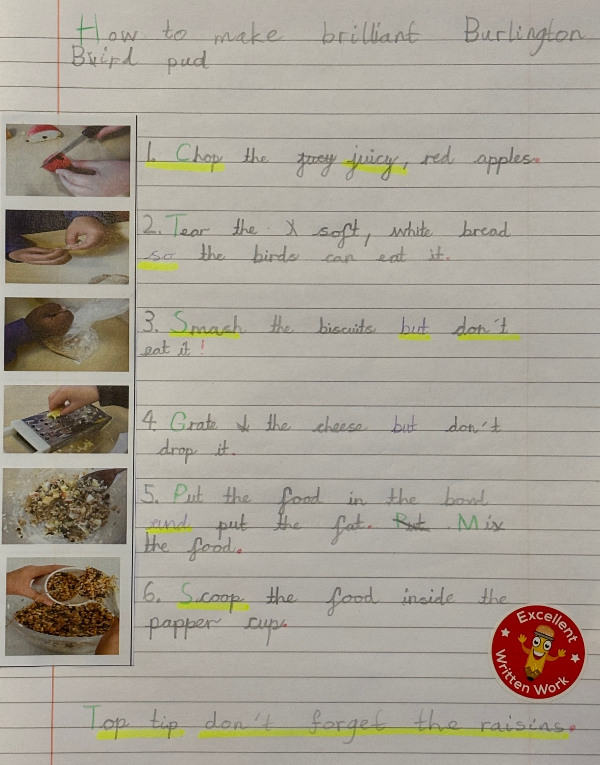 How to make brilliant Burlington
Buird pud
1. Chop the juicy, red apples.
2. Tear the soft, white bread
so the birds can eat it.
3. Smash the biscuits but don't
eat it!
4. Grate the cheese but don't
drop it.
5. Put the food in the bowl
and put the fat. Put Mix
the food.
6. Scoop the food inside the
papper cup.
Excellent
Written Work
Top tip don't forget the raisins.